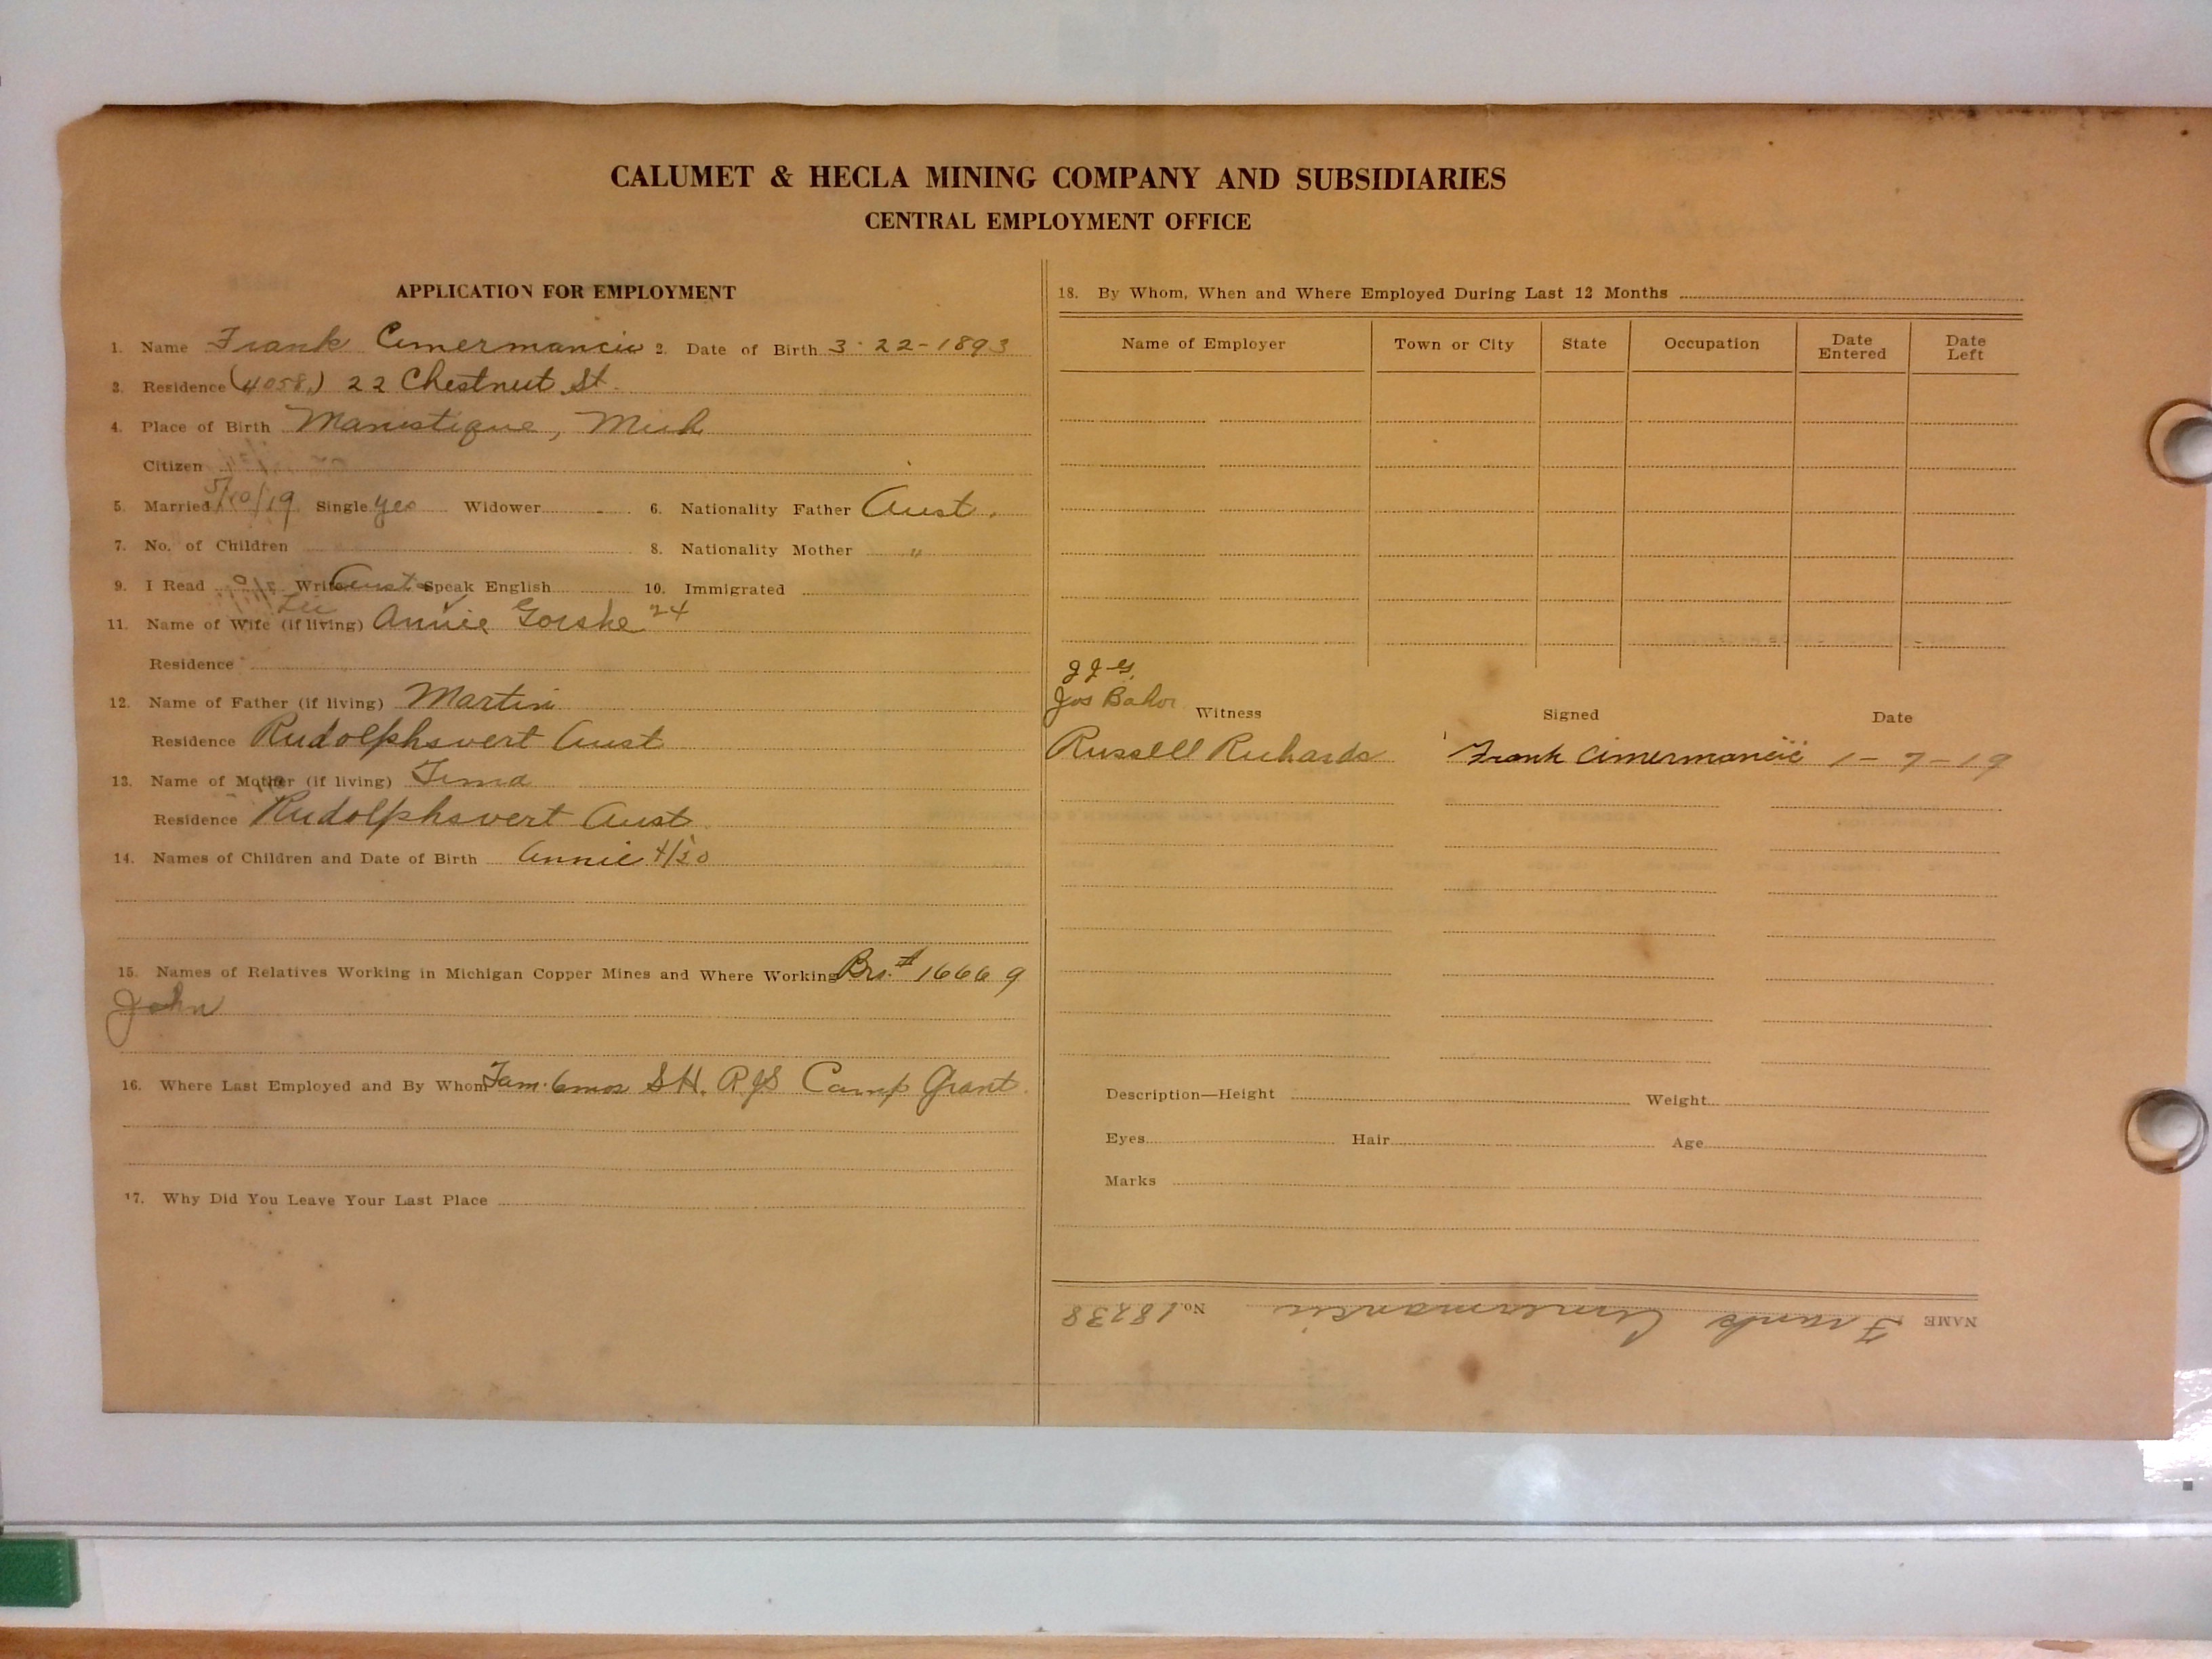 CALUMET & HECLA MINING COMPANY AND SUBSIDIARIES
CENTRAL EMPLOYMENT OFFICE
APPLICATION FOR EMPLOYMENT
1. Name Frank Cimermancic 2. Date of Birth 3-22-1893
3. Residence (4058) 22 Chestnut St.
4. Place of Birth Manistique, Mich
Citizen
5. Married 5/10/19 Single yes Widower 6. Nationality Father Aust.
7. No. of Children 8. Nationality Mother "
9. I Read Write Aust Speak English 10. Immigrated
11. Name of Wife (if living) Annie Gorshe 24
Residence
12. Name of Father (if living) Martin
Residence Rudolphsvert Aust
13. Name of Mother (if living)
Residence Rudolphsvert Aust
14. Names of Children and Date of Birth Annie 4/20
15. Names of Relatives Working in Michigan Copper Mines and Where Working Bro. # 16669
John
16. Where Last Employed and By Whom Tam. 6 mos SH. RJS Camp Grant
17. Why Did You Leave Your Last Place
18. By Whom, When and Where Employed During Last 12 Months
Name of Employer Town or City State Occupation Date Entered Date Left
Jos
Witness Signed Date
Russell Richards Frank Cimermancic 1-7-19
Description—Height Weight
Eyes Hair Age
Marks
NAME Frank Cimermancic No. 18238